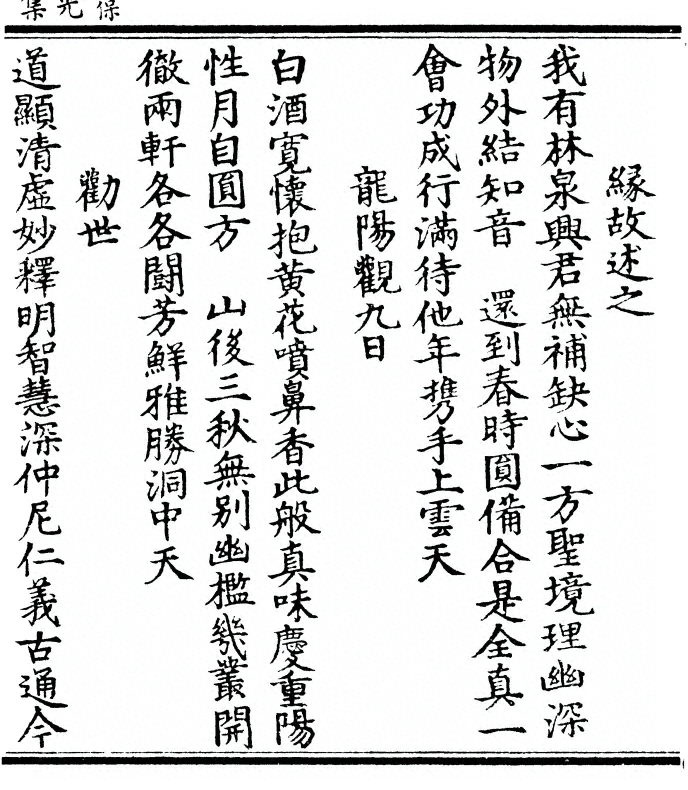 保光集
緣故述之
我有林泉興君無補缺心一方聖境理幽深
物外結知音　還到春時圓備合是全真一
會功成行滿待他年携手上雲天
龍陽觀九日
白酒寬懷抱黄花噴鼻香此般真味慶重陽
性月自圓方　山後三秋無别幽檻幾叢開
徹兩軒各各鬪芳鮮雅勝洞中天
勸世
道顯清虛妙釋明智慧深仲尼仁義古通今